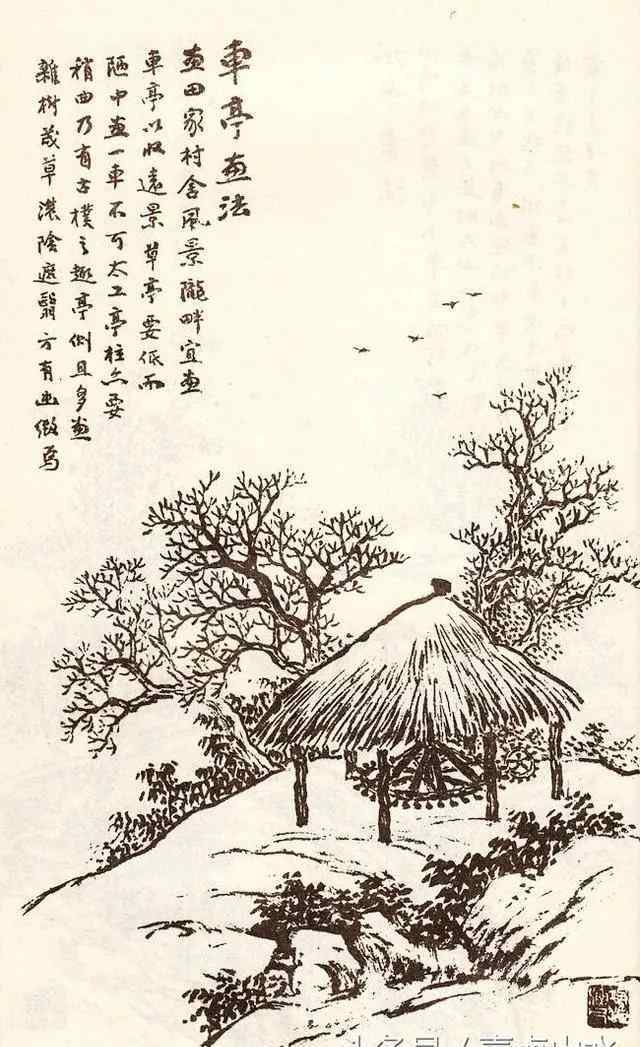 車亭畫法
畫田家村舍風景隴畔宜畫
車亭以收遠景草亭要低而
陋中畫一車不可太工亭柱亦要
稍曲乃有古樸之趣亭側且多畫
雜樹茂草濃陰遮翳方有幽緻焉